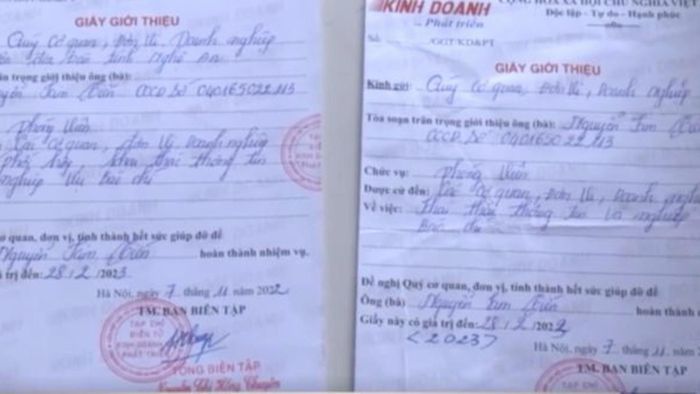 GIẤY GIỚI THIỆU
Quý cơ quan, Đơn vị, Doanh nghiệp
tỉnh Nghệ An
trân trọng giới thiệu ông (bà):
CCCD Số 040165022113
Phóng viên
cơ quan, đơn vị, doanh nghiệp
khai thác thông tin
nghiệp vụ báo chí
cơ quan, đơn vị, tỉnh thành hết sức giúp đỡ để
hoàn thành nhiệm vụ.
trị đến: 28/2/2023
Hà Nội, ngày 7 tháng 11 năm 2022
TM. BAN BIÊN TẬP
TẠP CHÍ
ĐIỆN TỬ
KINH DOANH
PHÁT TRIỂN
TỔNG BIÊN TẬP
Nguyễn Thị Hồng Chuyên
KINH DOANH
Phát triển
CỘNG HÒA XÃ HỘI CHỦ NGHĨA VIỆT
Độc lập - Tự do - Hạnh phúc
Số: /GGT/KD&PT
GIẤY GIỚI THIỆU
Kính gửi: Quý cơ quan, Đơn vị, Doanh nghiệp
Tòa soạn trân trọng giới thiệu ông (bà): Nguyễn
CCCD Số 040165022113
Chức vụ: Phóng viên
Được cử đến: Các cơ quan, Đơn vị, Doanh nghiệp
Về việc: Khai thác thông tin và nghiệp
báo chí
Đề nghị Quý cơ quan, đơn vị, tỉnh thành hết sức giúp đỡ để
Ông (bà) Nguyễn hoàn thành
Giấy này có giá trị đến: 28/2/2022
(2023)
Hà Nội, ngày 7 tháng 11 năm
TM. BAN BIÊN TẬP
TẠP CHÍ
ĐIỆN TỬ